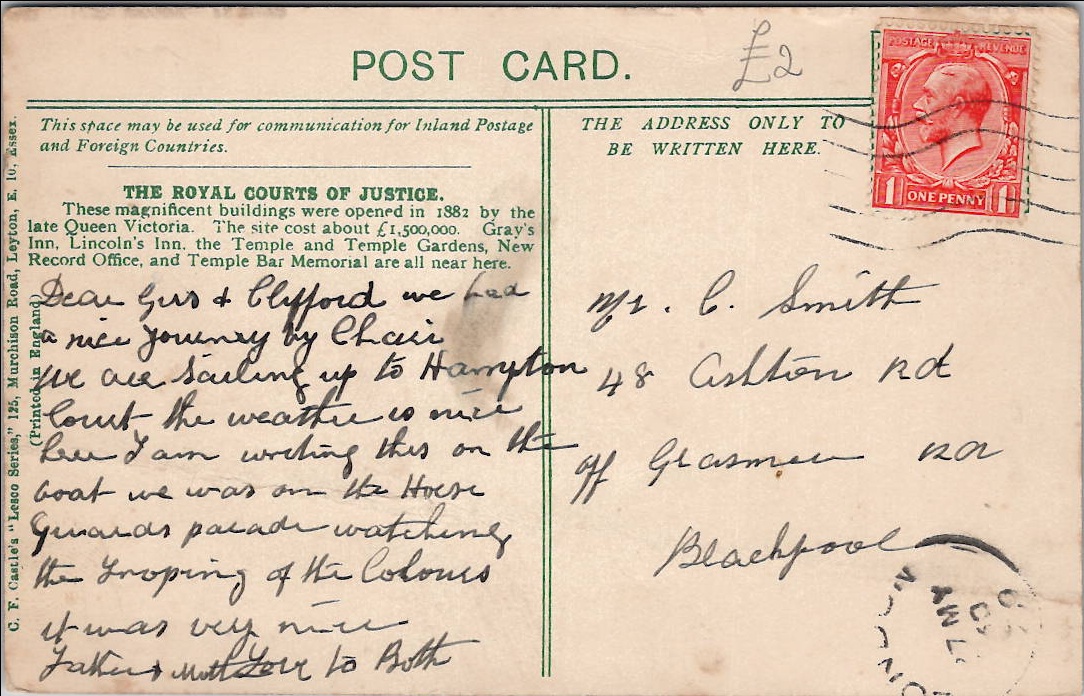 POST CARD.
£2
POSTAGE REVENUE
1 ONE PENNY 1
This space may be used for communication for Inland Postage
and Foreign Countries.
THE ROYAL COURTS OF JUSTICE.
These magnificent buildings were opened in 1882 by the
late Queen Victoria. The site cost about £1,500,000. Gray's
Inn, Lincoln's Inn. the Temple and Temple Gardens, New
Record Office, and Temple Bar Memorial are all near here.
Dear Guss & Clifford we had
a nice Journey by Chair
We are Sailing up to Hampton
Court the weather is nice
here I am writing this on the
boat we was on the Horse
Guards parade watching
the Trooping of the Colours
it was very nice
Father & Moth Love to Both
THE ADDRESS ONLY TO
BE WRITTEN HERE.
Mr. C. Smith
48 Ashton Rd
off Grasmere Rd
Blackpool
C. F. Castle's "Lesco Series," 125, Murchison Road, Leyton, E. 10, Essex.
(Printed in England)